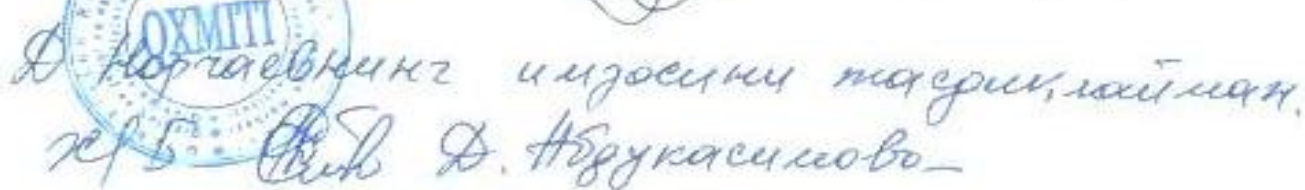 ОХМІТІ
Д Норчаевнинг имзосини тасдиқлайман.
х/Б Д. Абдукасимова